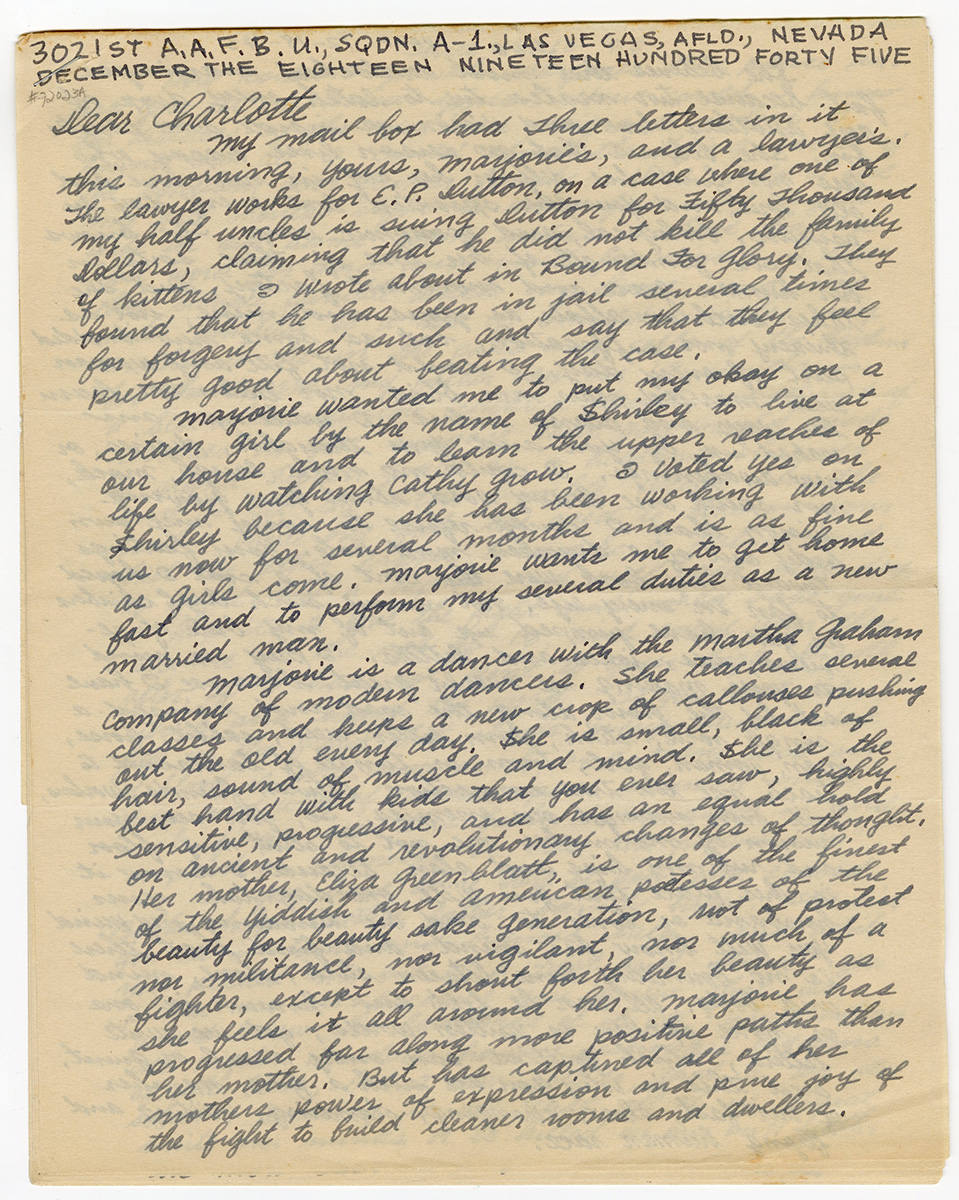 3021ST A.A.F.B.U., SQDN. A-1., LAS VEGAS, AFLD., NEVADA
DECEMBER THE EIGHTEEN NINETEEN HUNDRED FORTY FIVE
#72023A
Dear Charlotte
My mail box had three letters in it
this morning, yours, Marjorie's, and a lawyer's.
The lawyer works for E.P. Dutton, on a case where one of
my half uncles is suing Dutton for Fifty Thousand
Dollars, claiming that he did not kill the family
of kittens I wrote about in Bound For Glory. They
found that he has been in jail several times
for forgery and such and say that they feel
pretty good about beating the case.
Marjorie wanted me to put my okay on a
certain girl by the name of Shirley to live at
our house and to learn the upper reaches of
life by watching Cathy grow. I voted yes on
Shirley because she has been working with
us now for several months and is as fine
as girls come. Marjorie wants me to get home
fast and to perform my several duties as a new
married man.
Marjorie is a dancer with the Martha Graham
Company of modern dancers. She teaches several
classes and keeps a new crop of callouses pushing
out the old every day. She is small, black of
hair, sound of muscle and mind. She is the
best hand with kids that you ever saw, highly
sensitive, progressive, and has an equal hold
on ancient and revolutionary changes of thought.
Her mother, Eliza Greenblatt, is one of the finest
of the Yiddish and American potesses of the
beauty for beauty sake generation, not of protest
nor militance, nor vigilant, nor much of a
fighter, except to shout forth her beauty as
she feels it all around her. Marjorie has
progressed far along more positive paths than
her mother. But has captured all of her
mothers power of expression and pure joy of
the fight to build cleaner rooms and dwellers.